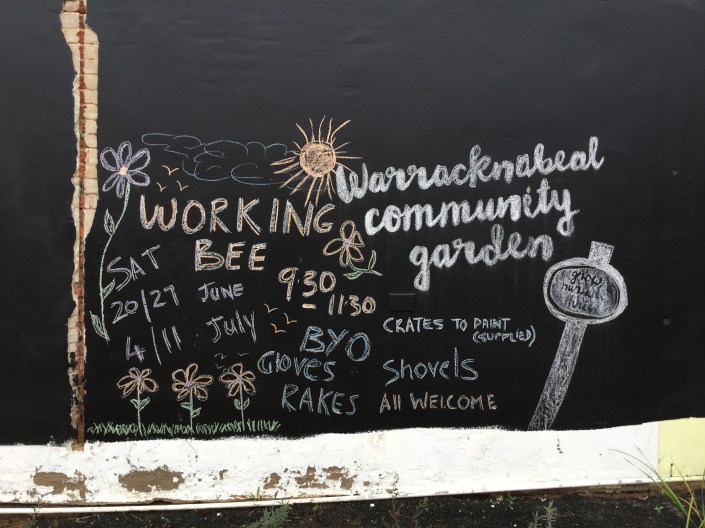 Warracknabeal
community
garden
WORKING
BEE
SAT
20/27 JUNE
4/11 July
9.30
- 11:30
BYO
Gloves
RAKES
Shovels
CRATES TO PAINT
(SUPPLIED)
All WELCOME
grow